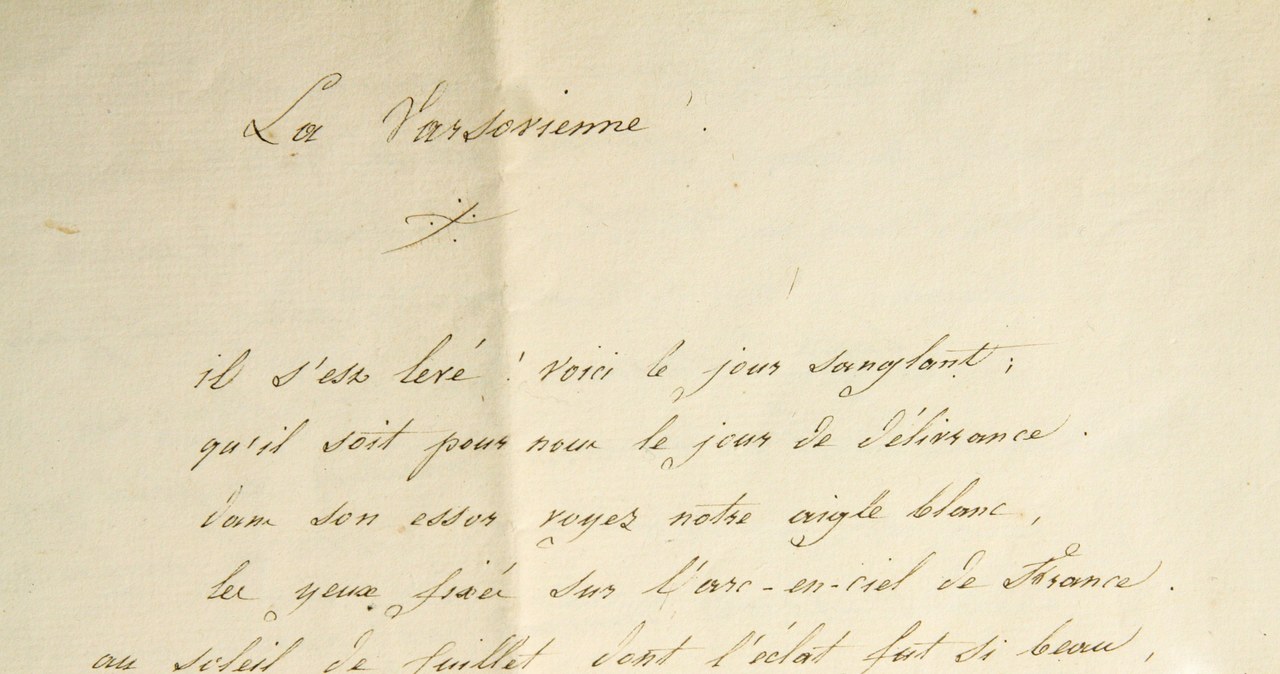 La Varsovienne .
il s'est levé ! voici le jour sanglant ;
qu'il soit pour nous le jour de délivrance .
dans son essor voyez notre aigle blanc ,
les yeux fixés sur l'arc-en-ciel de France .
au soleil de juillet dont l'éclat fut si beau ,